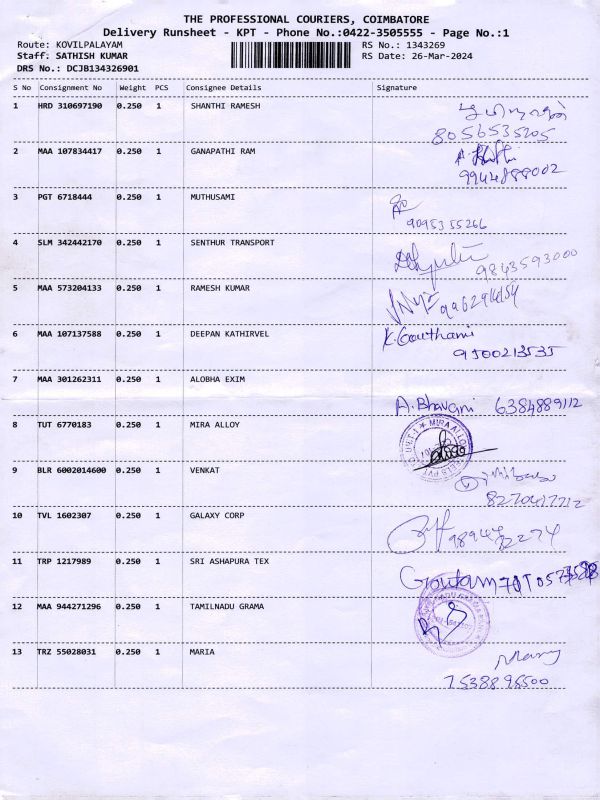 THE PROFESSIONAL COURIERS, COIMBATORE
Delivery Runsheet - KPT - Phone No.:0422-3505555 - Page No.:1
Route: KOVILPALAYAM RS No.: 1343269
Staff: SATHISH KUMAR RS Date: 26-Mar-2024
DRS No.: DCJB134326901
S No Consignment No Weight PCS Consignee Details Signature
1 HRD 310697190 0.250 1 SHANTHI RAMESH
8056535205
2 MAA 107834417 0.250 1 GANAPATHI RAM
9944888002
3 PGT 6718444 0.250 1 MUTHUSAMI
9095355266
4 SLM 342442170 0.250 1 SENTHUR TRANSPORT
9843593000
5 MAA 573204133 0.250 1 RAMESH KUMAR
6 MAA 107137588 0.250 1 DEEPAN KATHIRVEL K. Gouthami
9500213535
7 MAA 301262311 0.250 1 ALOBHA EXIM
A. Bhavani 6384889112
8 TUT 6770183 0.250 1 MIRA ALLOY
9 BLR 6002014600 0.250 1 VENKAT
8270417212
10 TVL 1602307 0.250 1 GALAXY CORP
11 TRP 1217989 0.250 1 SRI ASHAPURA TEX
Goutam
12 MAA 944271296 0.250 1 TAMILNADU GRAMA
13 TRZ 55028031 0.250 1 MARIA
Mary